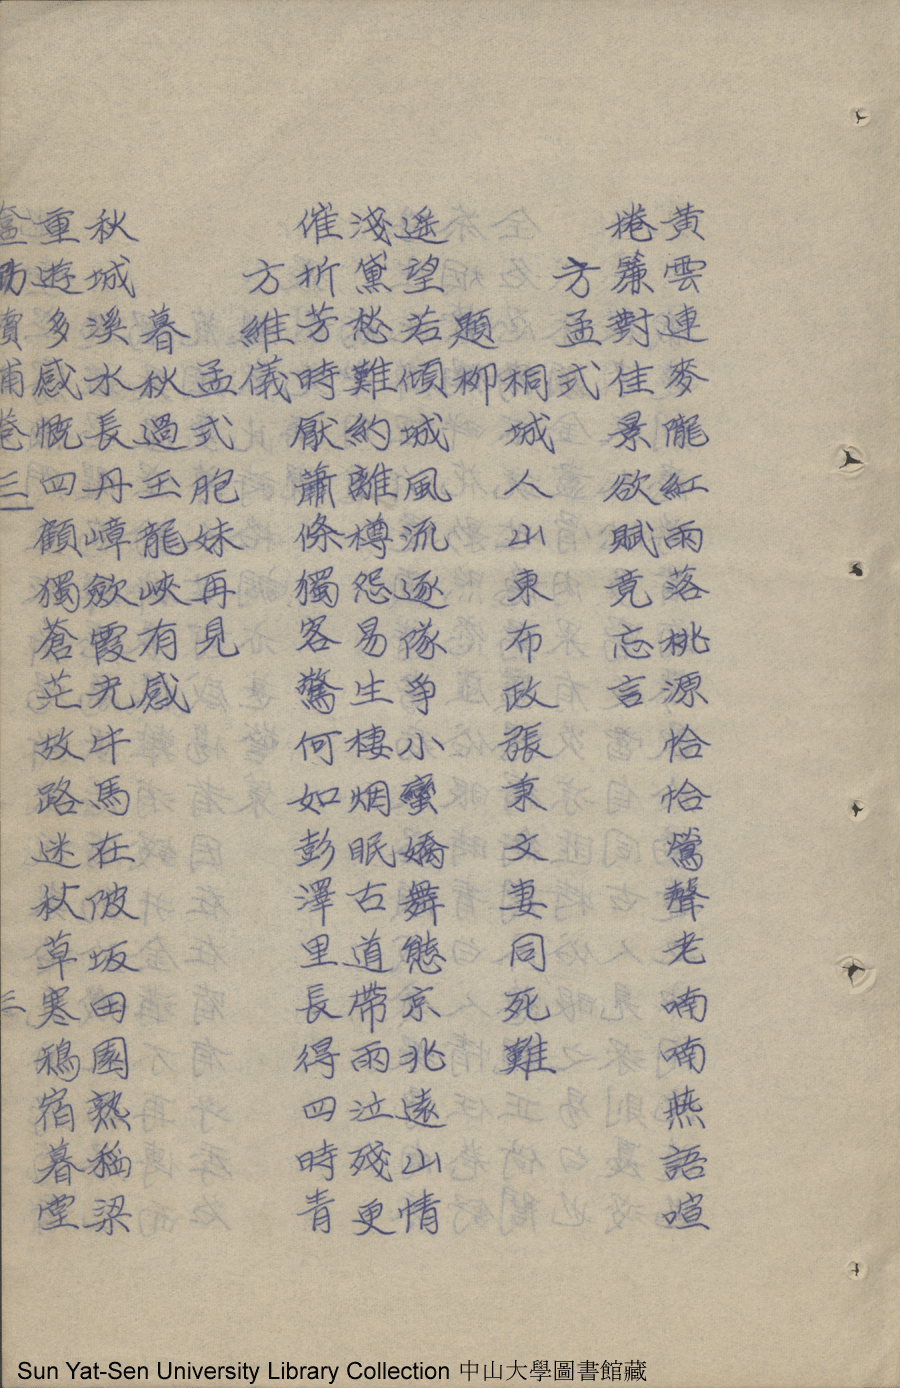 黃雲連麥隴紅雨落桃源恰恰鶯聲老喃喃燕語喧
捲簾對佳景欲賦竟忘言
方孟式
桐城人山東布政張秉文妻同死難
題柳
遥望若傾城風流逐隊爭小蠻嬌舞態京兆遠山情
淺黛愁難約離樽怨易生棲烟眠古道帶雨泣殘更
催折芳時厭蕭條獨客驚何如彭澤里長得四時青
方維儀
孟式胞妹再見
暮秋過玉龍峽有感
秋城溪水長丹嶂斂霞光牛馬在陂坂田園熟稻梁
重遊多感慨四顧獨蒼茫故路迷秋草寒鴉宿暮堂
卷三 三
Sun Yat-Sen University Library Collection 中山大學圖書館藏